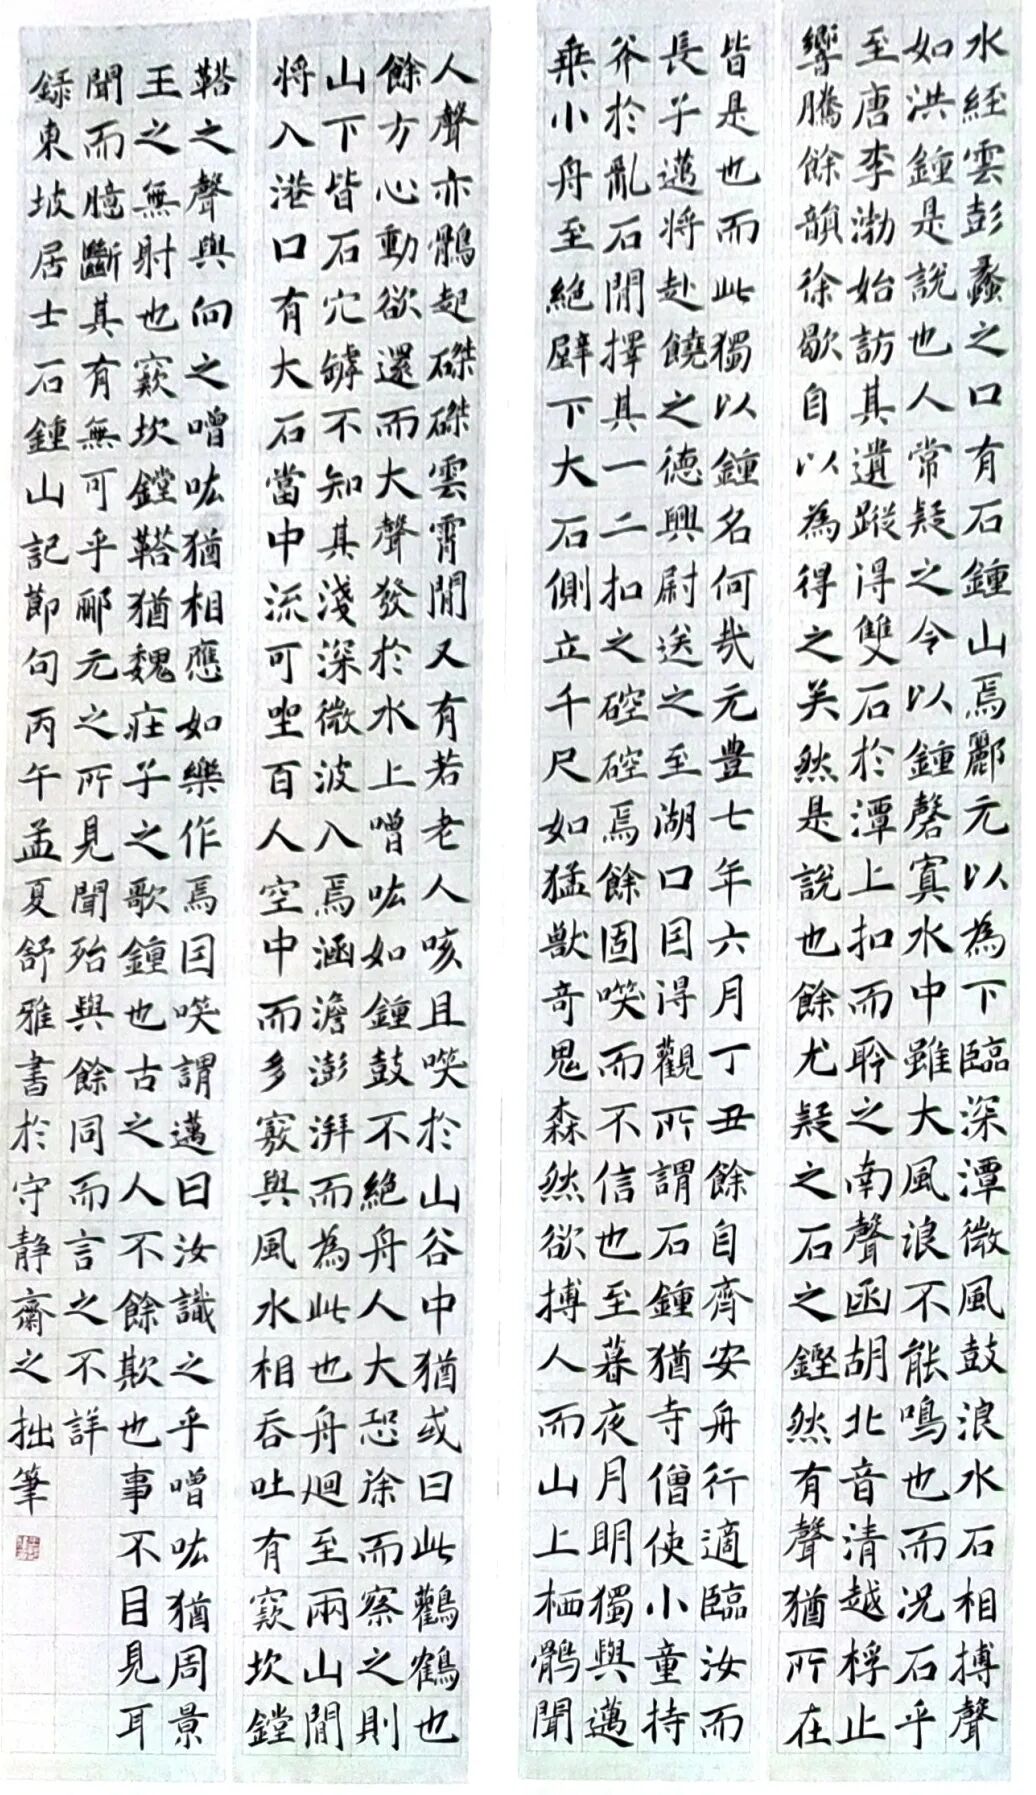 水經雲彭蠡之口有石鍾山焉酈元以為下臨深潭微風鼓浪水石相搏聲
如洪鍾是說也人常疑之今以鍾磬寘水中雖大風浪不能鳴也而況石乎
至唐李渤始訪其遺蹤得雙石於潭上扣而聆之南聲函胡北音清越桴止
響騰餘韻徐歇自以為得之矣然是說也餘尤疑之石之鏗然有聲猶所在
皆是也而此獨以鍾名何哉元豊七年六月丁丑餘自齊安舟行適臨汝而
長子邁將赴饒之德興尉送之至湖口因得觀所謂石鍾猶寺僧使小童持
斧於亂石間擇其一二扣之硿硿焉餘固笑而不信也至暮夜月明獨與邁
乘小舟至絕壁下大石側立千尺如猛獸奇鬼森然欲搏人而山上栖鶻聞
人聲亦鶻起磔磔雲霄間又有若老人咳且笑於山谷中猶或曰此鸛鶴也
餘方心動欲還而大聲發於水上噌吰如鍾鼓不絕舟人大恐徐而察之則
山下皆石穴罅不知其淺深微波入焉涵澹澎湃而為此也舟迴至兩山間
將入港口有大石當中流可坐百人空中而多竅與風水相吞吐有窾坎鏜
鞳之聲與向之噌吰猶相應如樂作焉因笑謂邁曰汝識之乎噌吰猶周景
王之無射也窾坎鏜鞳猶魏莊子之歌鍾也古之人不餘欺也事不目見耳
聞而臆斷其有無可乎酈元之所見聞殆與餘同而言之不詳
錄東坡居士石鍾山記節句丙午孟夏舒雅書於守靜齋之拙筆